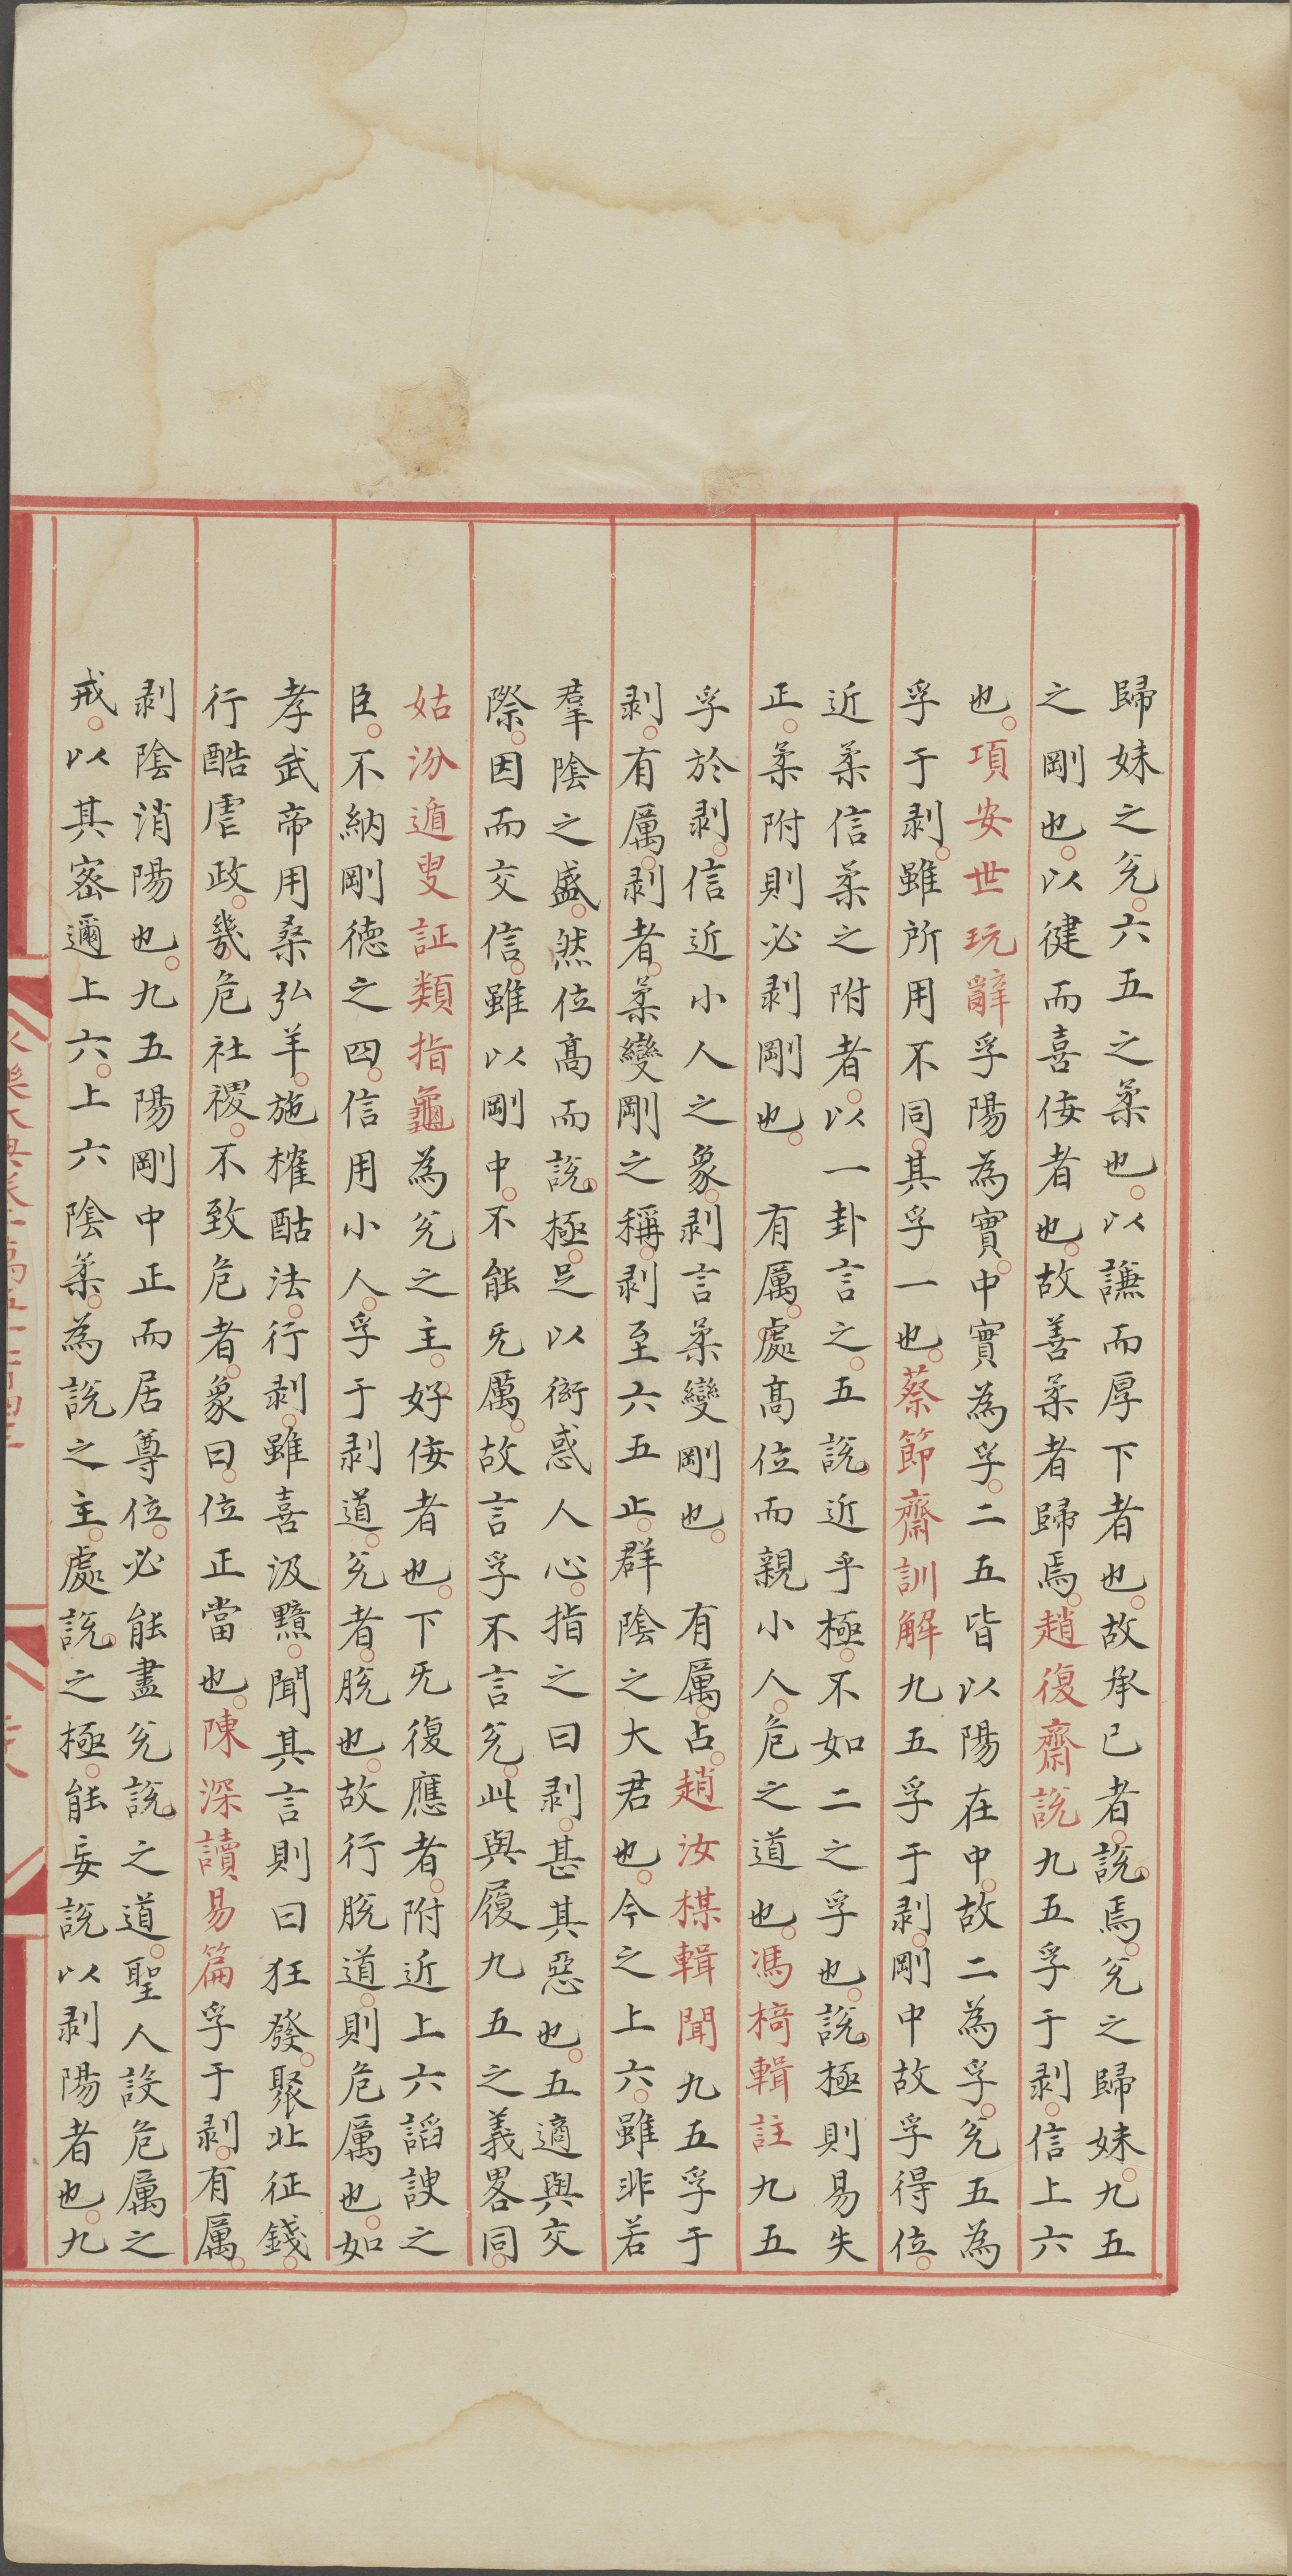 歸妹之兊。六五之柔也。以謙而厚下者也。故承已者。說焉。兊之歸妹。九五
之剛也。以健而喜佞者也。故善柔者歸焉。趙復齋說九五孚于剥。信上六
也。項安世玩辭孚陽為實。中實為孚。二五皆以陽在中。故二為孚。兊五為
孚于剥。雖所用不同。其孚一也。蔡節齋訓解九五孚于剥。剛中故孚得位。
近柔信柔之附者。以一卦言之。五說近乎極。不如二之孚也。說極則易失
正。柔附則必剥剛也。 有厲。處髙位而親小人。危之道也。馮椅輯註九五
孚於剥。信近小人之象。剥言柔變剛也。 有厲。占。趙汝楳輯聞九五孚于
剥。有厲。剥者。柔變剛之稱。剥至六五止。群陰之大君也。今之上六。雖非若
羣陰之盛。然位髙而說極。足以衒惑人心。指之曰剥。甚其惡也。五適與交
際。因而交信。雖以剛中。不能旡厲。故言孚不言兊。此與履九五之義畧同。
姑汾遁叟証類指龜為兊之主。好佞者也。下旡復應者。附近上六謟諛之
臣。不納剛德之四。信用小人。孚于剥道。兊者。脱也。故行脱道。則危厲也。如
孝武帝用桑弘羊。施榷酤法。行剥。雖喜汲黯。聞其言則曰狂發。聚北征錢。
行酷虐政。幾危社稷。不致危者。象曰。位正當也。陳深讀易篇孚于剥。有厲。
剥陰消陽也。九五陽剛中正而居尊位。必能盡兊說之道。聖人設危厲之
戒。以其密邇上六。上六陰柔。為說之主。處說之極。能妄說以剥陽者也。九